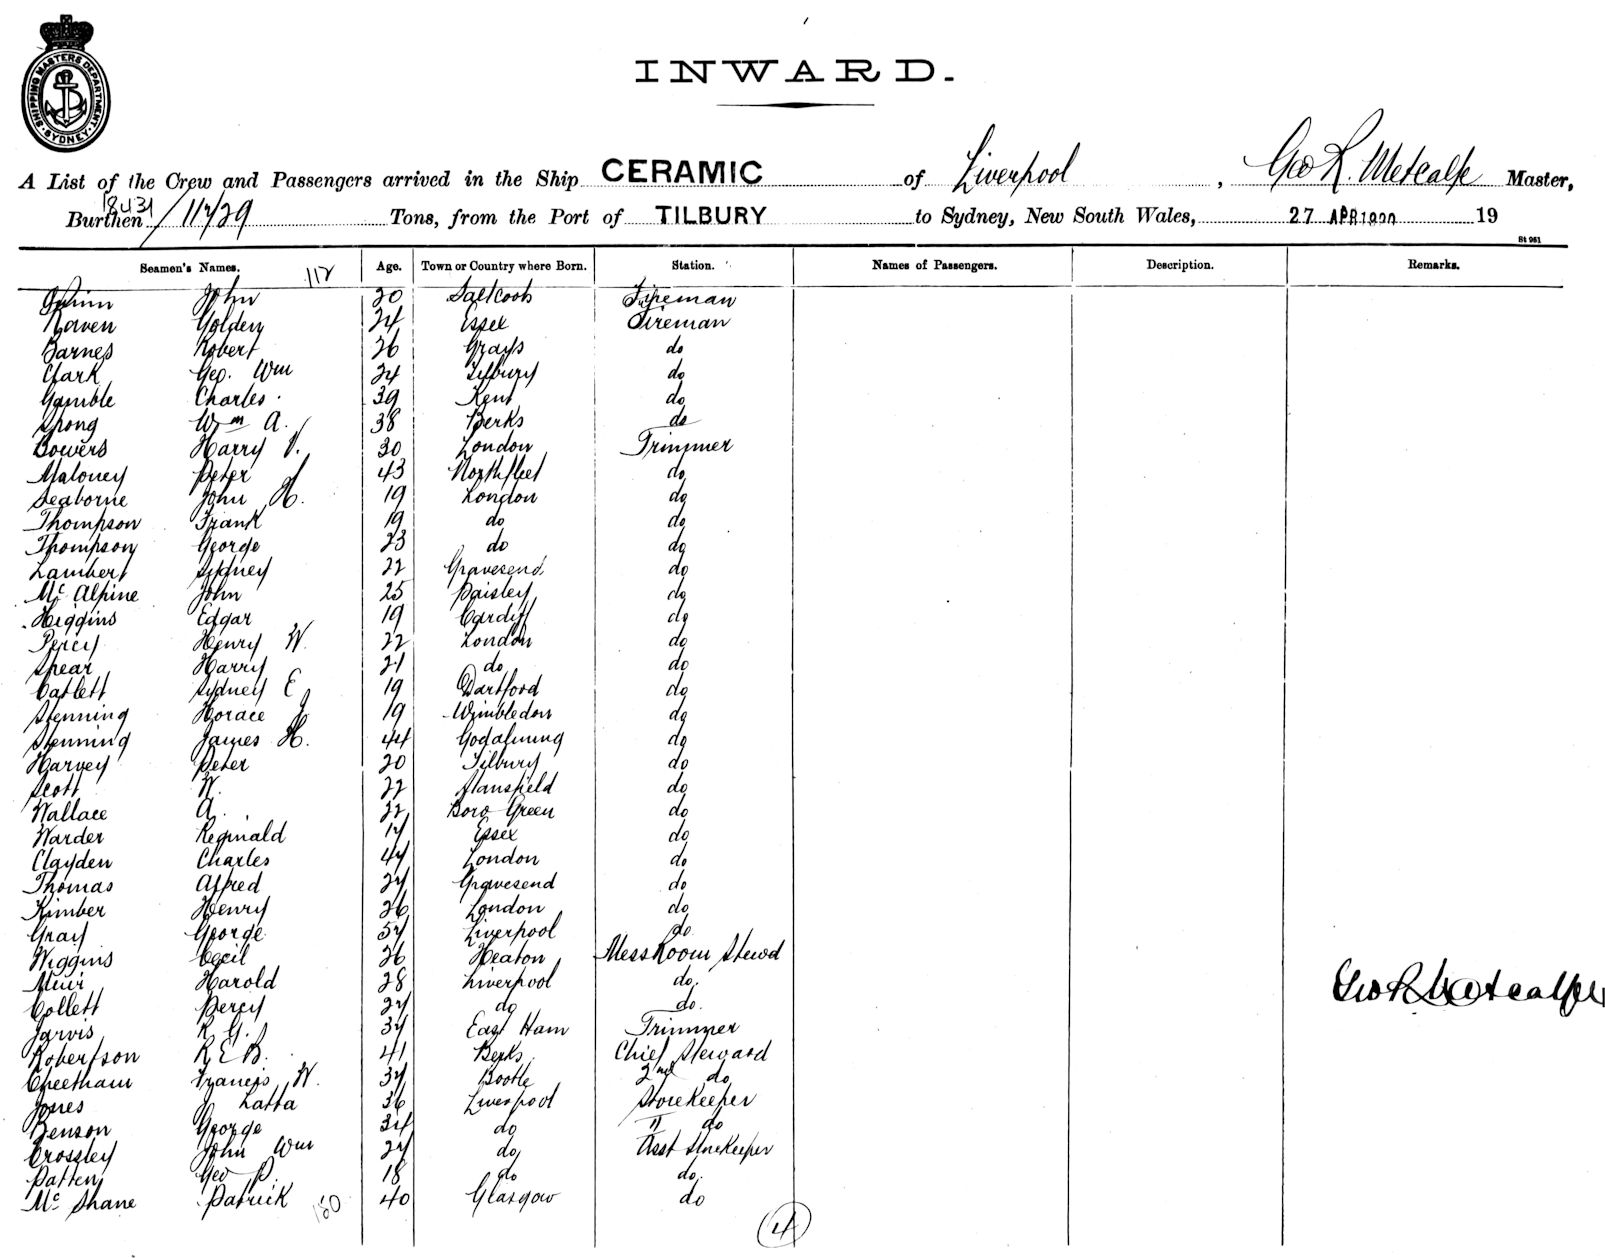 SHIPPING MASTERS DEPARTMENT
SYDNEY
INWARD.
A List of the Crew and Passengers arrived in the Ship CERAMIC of Liverpool, Geo R. Metcalfe Master,
Burthen 18431/11729 Tons, from the Port of TILBURY to Sydney, New South Wales, 27 APR 19
St 961
Seamen's Names. 112 Age. Town or Country where Born. Station. Names of Passengers. Description. Remarks.
Quinn John 20 Saltcoats Fireman
Raven Golden 24 Essex Fireman
Barnes Robert 26 Grays do
Clark Geo. Wm 24 Tilbury do
Gamble Charles 39 Kent do
Spong Wm A. 38 Berks do
Bowers Harry V. 30 London Trimmer
Maloney Peter 43 Northfleet do
Seaborne John H. 19 London do
Thompson Frank 19 do do
Thompson George 23 do do
Lambert Sydney 22 Gravesend do
Mc Alpine John 25 Paisley do
Higgins Edgar 19 Cardiff do
Percy Henry W. 22 London do
Spear Harry 21 do do
Catlett Sydney E 19 Dartford do
Stenning Horace J 19 Wimbledon do
Stenning James H. 44 Godalming do
Harvey Peter 20 Tilbury do
Scott W. 22 Mansfield do
Wallace A. 22 Boro Green do
Warder Reginald Essex do
Clayden Charles London do
Thomas Alfred Gravesend do
Kimber Henry 26 London do
Gray George Liverpool do
Wiggins Cecil 26 Heaton Mess Room Stewd
Muir Harold 28 Liverpool do.
Collett Percy do do.
Jarvis R. G. East Ham Trimmer
Robertson R E B. 41 Berks. Chief Steward
Cheetham Francis W. Bootle 2nd do
Jones J Latta 36 Liverpool Storekeeper
Benson George 34 do " do
Crossley John Wm do Asst Storekeeper
Patten Geo P. 18 do do.
Mc Shane Patrick 40 Glasgow do
Geo R Metcalfe
150
4